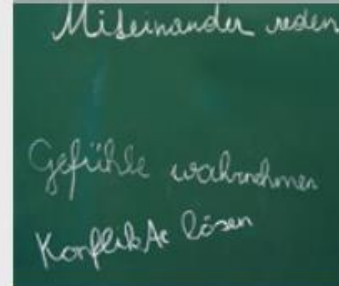 Miteinander reden
Gefühle wahrnehmen
Konflikte lösen